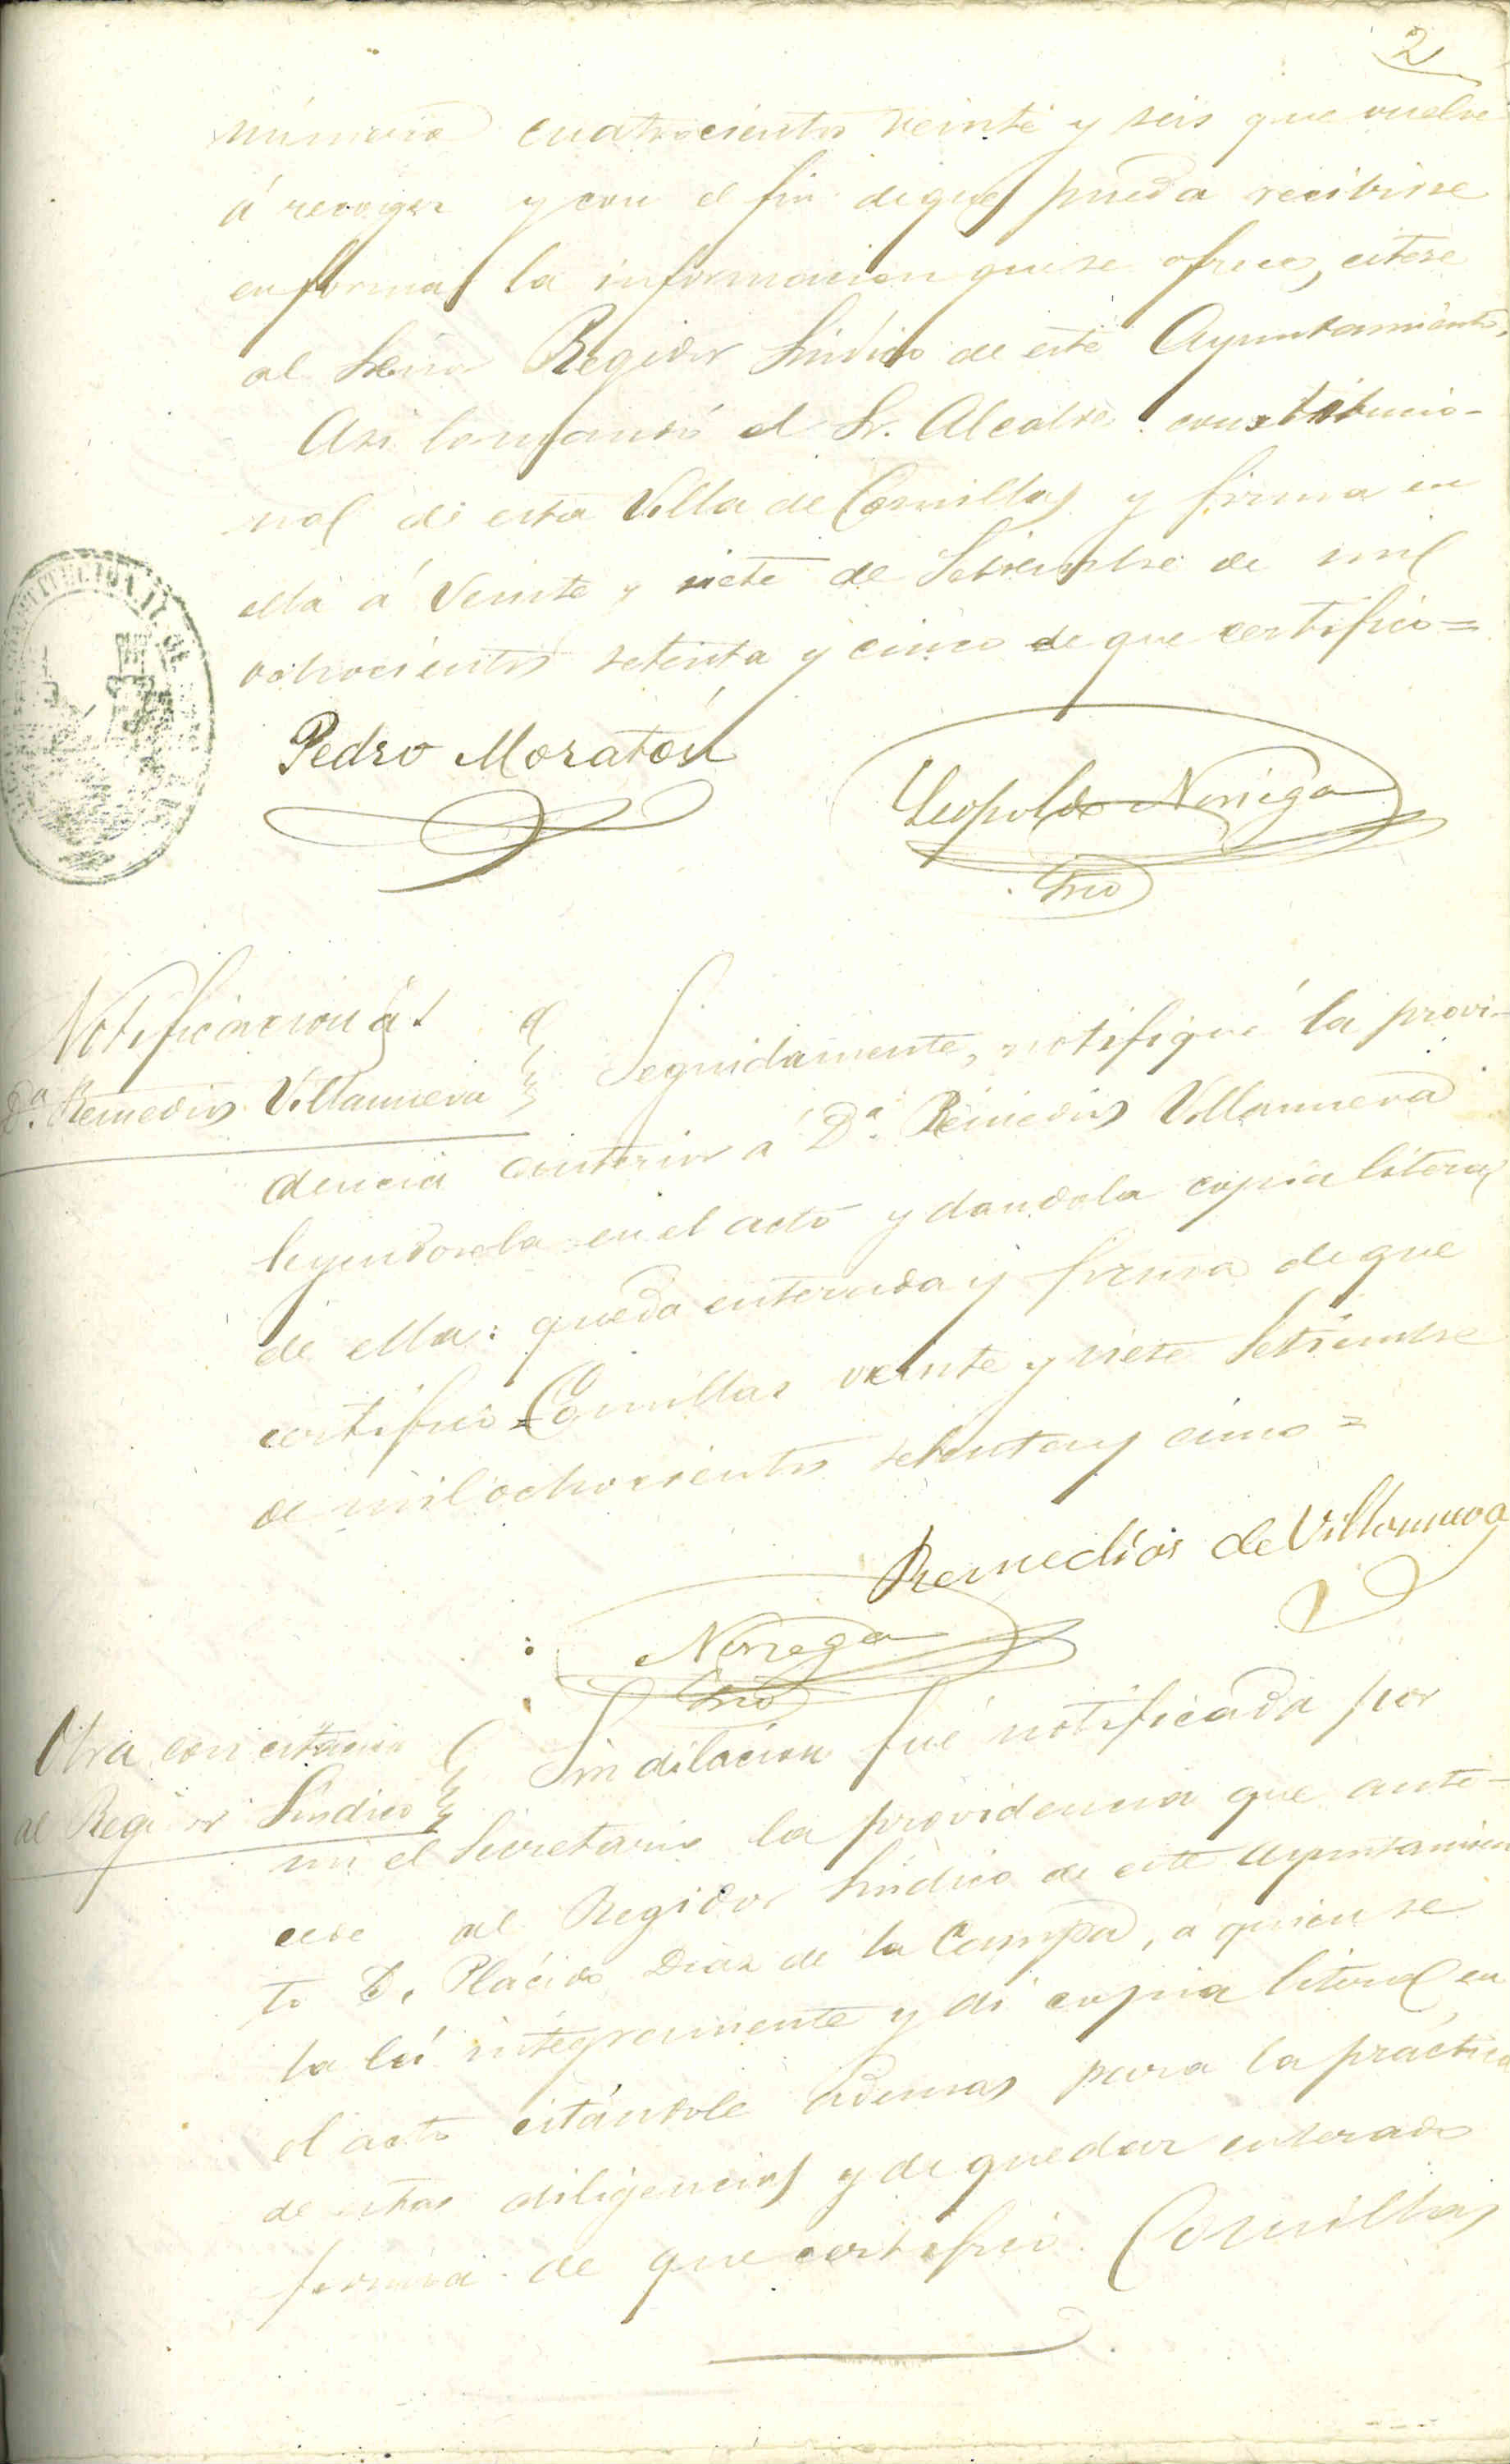 2
número cuatrocientos veinte y seis que vuelve
á recoger y con el fin de que pueda recibirse
en forma la informacion que se ofrece, citese
al Señor Regidor Síndico de este Ayuntamiento,
Asi lo mandó el Sr. Alcalde constitucio-
nal de esta Villa de Comillas y firma en
ella á veinte y siete de Setiembre de mil
ochocientos setenta y cinco de que certifico =
Pedro Moratón
Leopoldo Noriega
Srio
Notificacion á
Dª. Remedios Villanueva
Seguidamente, notifiqué la provi-
dencia anterior a Dª. Remedios Villanueva
leyendosela en el acto y dandola copia literal
de ella: queda enterada y firma de que
certifico = Comillas veinte y siete Setiembre
de mil ochocientos setenta y cinco =
Remedios de Villanueva
Noriega
Srio
Otra con citacion
al Regidor Síndico
Sin dilacion fué notificada por
mi el Secretario la providencia que ante-
cede al Regidor Síndico de este Ayuntamien
to D. Plácido Diaz de la Campa, a quien se
la leí integramente y di copia literal en
el acto citándole ademas para la práctica
de estas diligencias y de quedar enterado
firma de que certifico. Comillas